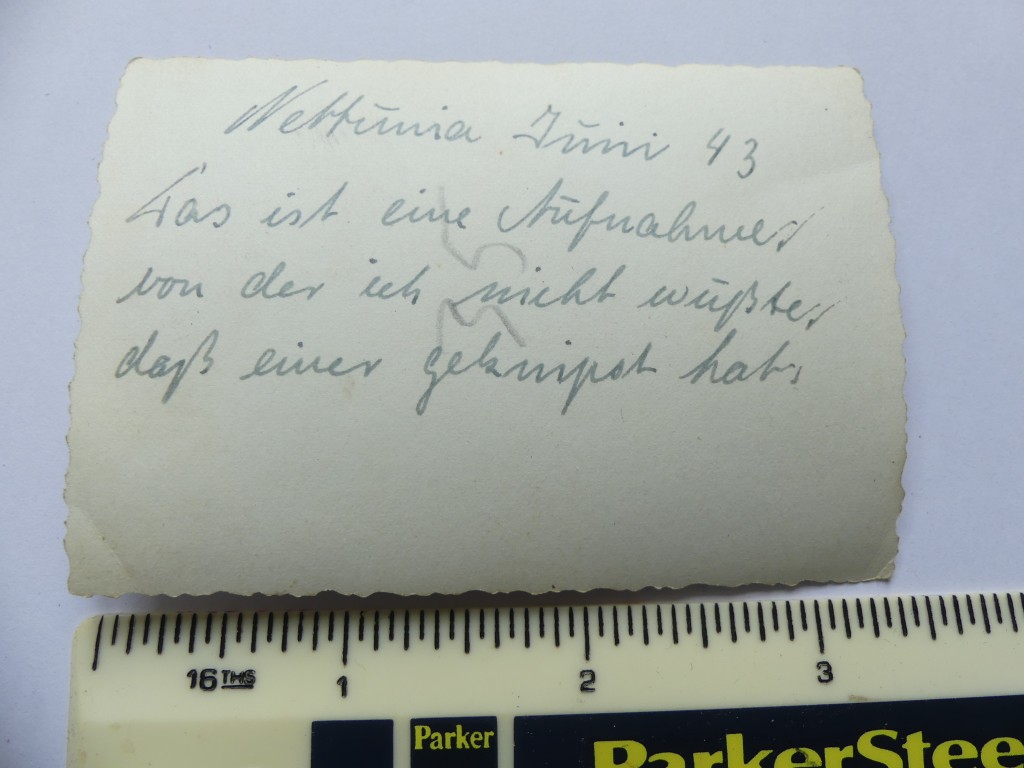 Nettunia Juni 43
Das ist eine Aufnahme,
von der ich nicht wußte,
daß einer geknipst hat.
16THS 1 2 3
Parker ParkerStee